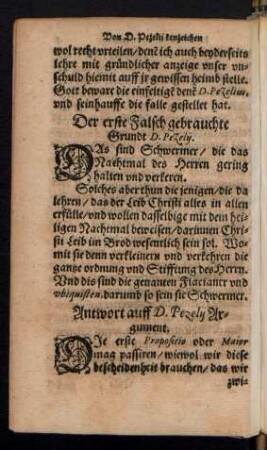 Von D. Pezelij kenzeichen
wol recht vrteilen / deñ ich auch beyderseits
lehre mit gründlicher anzeige vnser vn-
schuld hiemit auff jr gewissen heimb stelle.
Gott beware die einfeltigẽ denẽ D. Pezelius,
vnd sein hauffe die falle gestellet hat.
Der erste Falsch gebrauchte
Grundt D. Pezely.
DAs sind Schwermer / die das
Nachtmal des Herren gering
halten vnd verkeren.
Solches aber thun die jenigen / die da
lehren / das der Leib Christi alles in allen
erfülle / vnd wollen dasselbige mit dem hei-
ligen Nachtmal beweisen / darinnen Chri-
sti Leib im Brod wesentlich sein sol. Wo-
mit sie denn verkleinern vnd verkehren die
gantze ordnung vnd Stifftung des Herrn.
Vnd dis sind die genanten Flacianer vnd
vbiquisten, darumb so sein sie Schwermer.
Antwort auff D. Pezely Ar-
gument.
DIe erste Propositio oder Maior
mag passiren / wiewol wir diese
bescheidenheit brauchen / das wir
zwi-